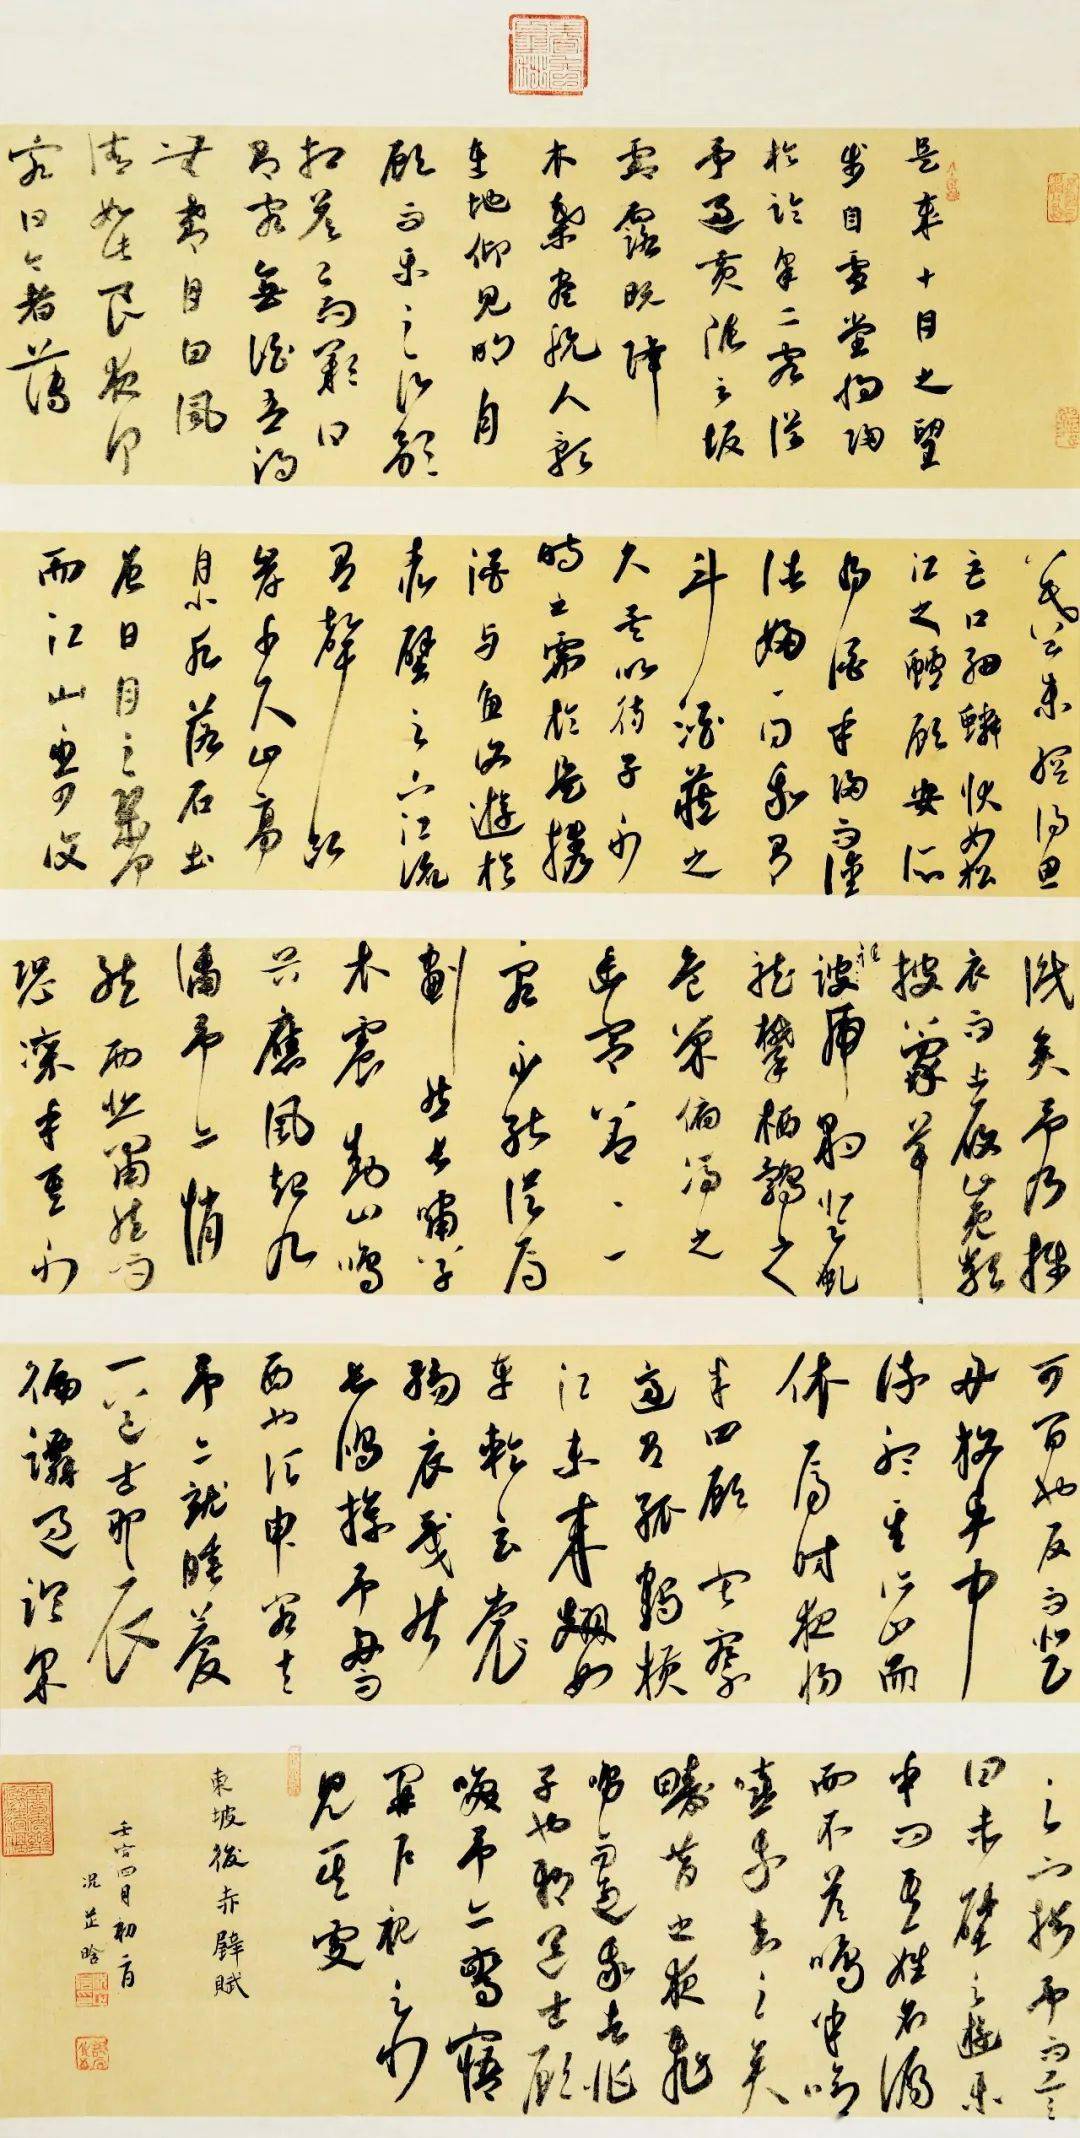 是歲十月之望
步自雪堂將歸
於臨皋二客從
予過黃泥之坂
霜露既降
木葉盡脫人影
在地仰見明月
顧而樂之行歌
相答已而歎曰
有客無酒有酒
無肴月白風
清如此良夜何
客曰今者薄
暮舉網得魚
巨口細鱗狀如松
江之鱸顧安所
得酒乎歸而謀
諸婦婦曰我有
斗酒藏之
久矣以待子不
時之需於是攜
酒與魚復遊於
赤壁之下江流
有聲斷
岸千尺山高
月小水落石出
曾日月之幾何
而江山不可復
識矣予乃攝
衣而上履巉巖
披蒙茸
踞虎豹登虬
龍攀栖鶻之
危巢俯馮之
幽宮蓋二
客不能從焉
劃然長嘯草
木震動山鳴
谷應風起水
湧予亦悄
然而悲肅然而
恐凜乎其不
可留也反而登
舟放乎中
流聽其所止而
休焉時夜將
半四顧寂寥
適有孤鶴橫
江東來翅如
車輪玄裳
縞衣戛然
長鳴掠予舟而
西也須臾客去
予亦就睡夢
一道士羽衣
蹁躚過臨皋
之下揖予而言
曰赤壁之遊樂
乎問其姓名俛
而不答嗚呼噫
嘻我知之矣
疇昔之夜飛
鳴而過我者非
子也耶道士顧
笑予亦驚寤
開戶視之不
見其處
東坡後赤壁賦
四月初
況芷晗